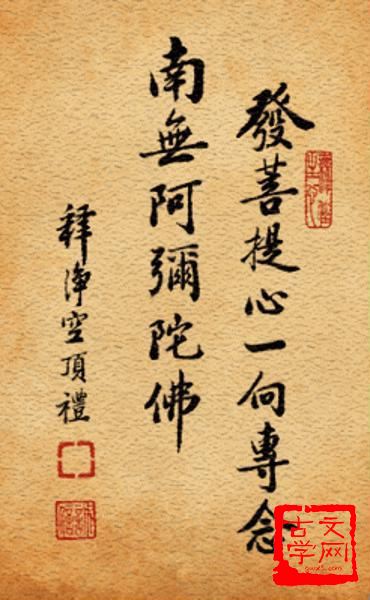 發菩提心一向專念
南無阿彌陀佛
釋淨空頂禮
古文学网
gwx5.com